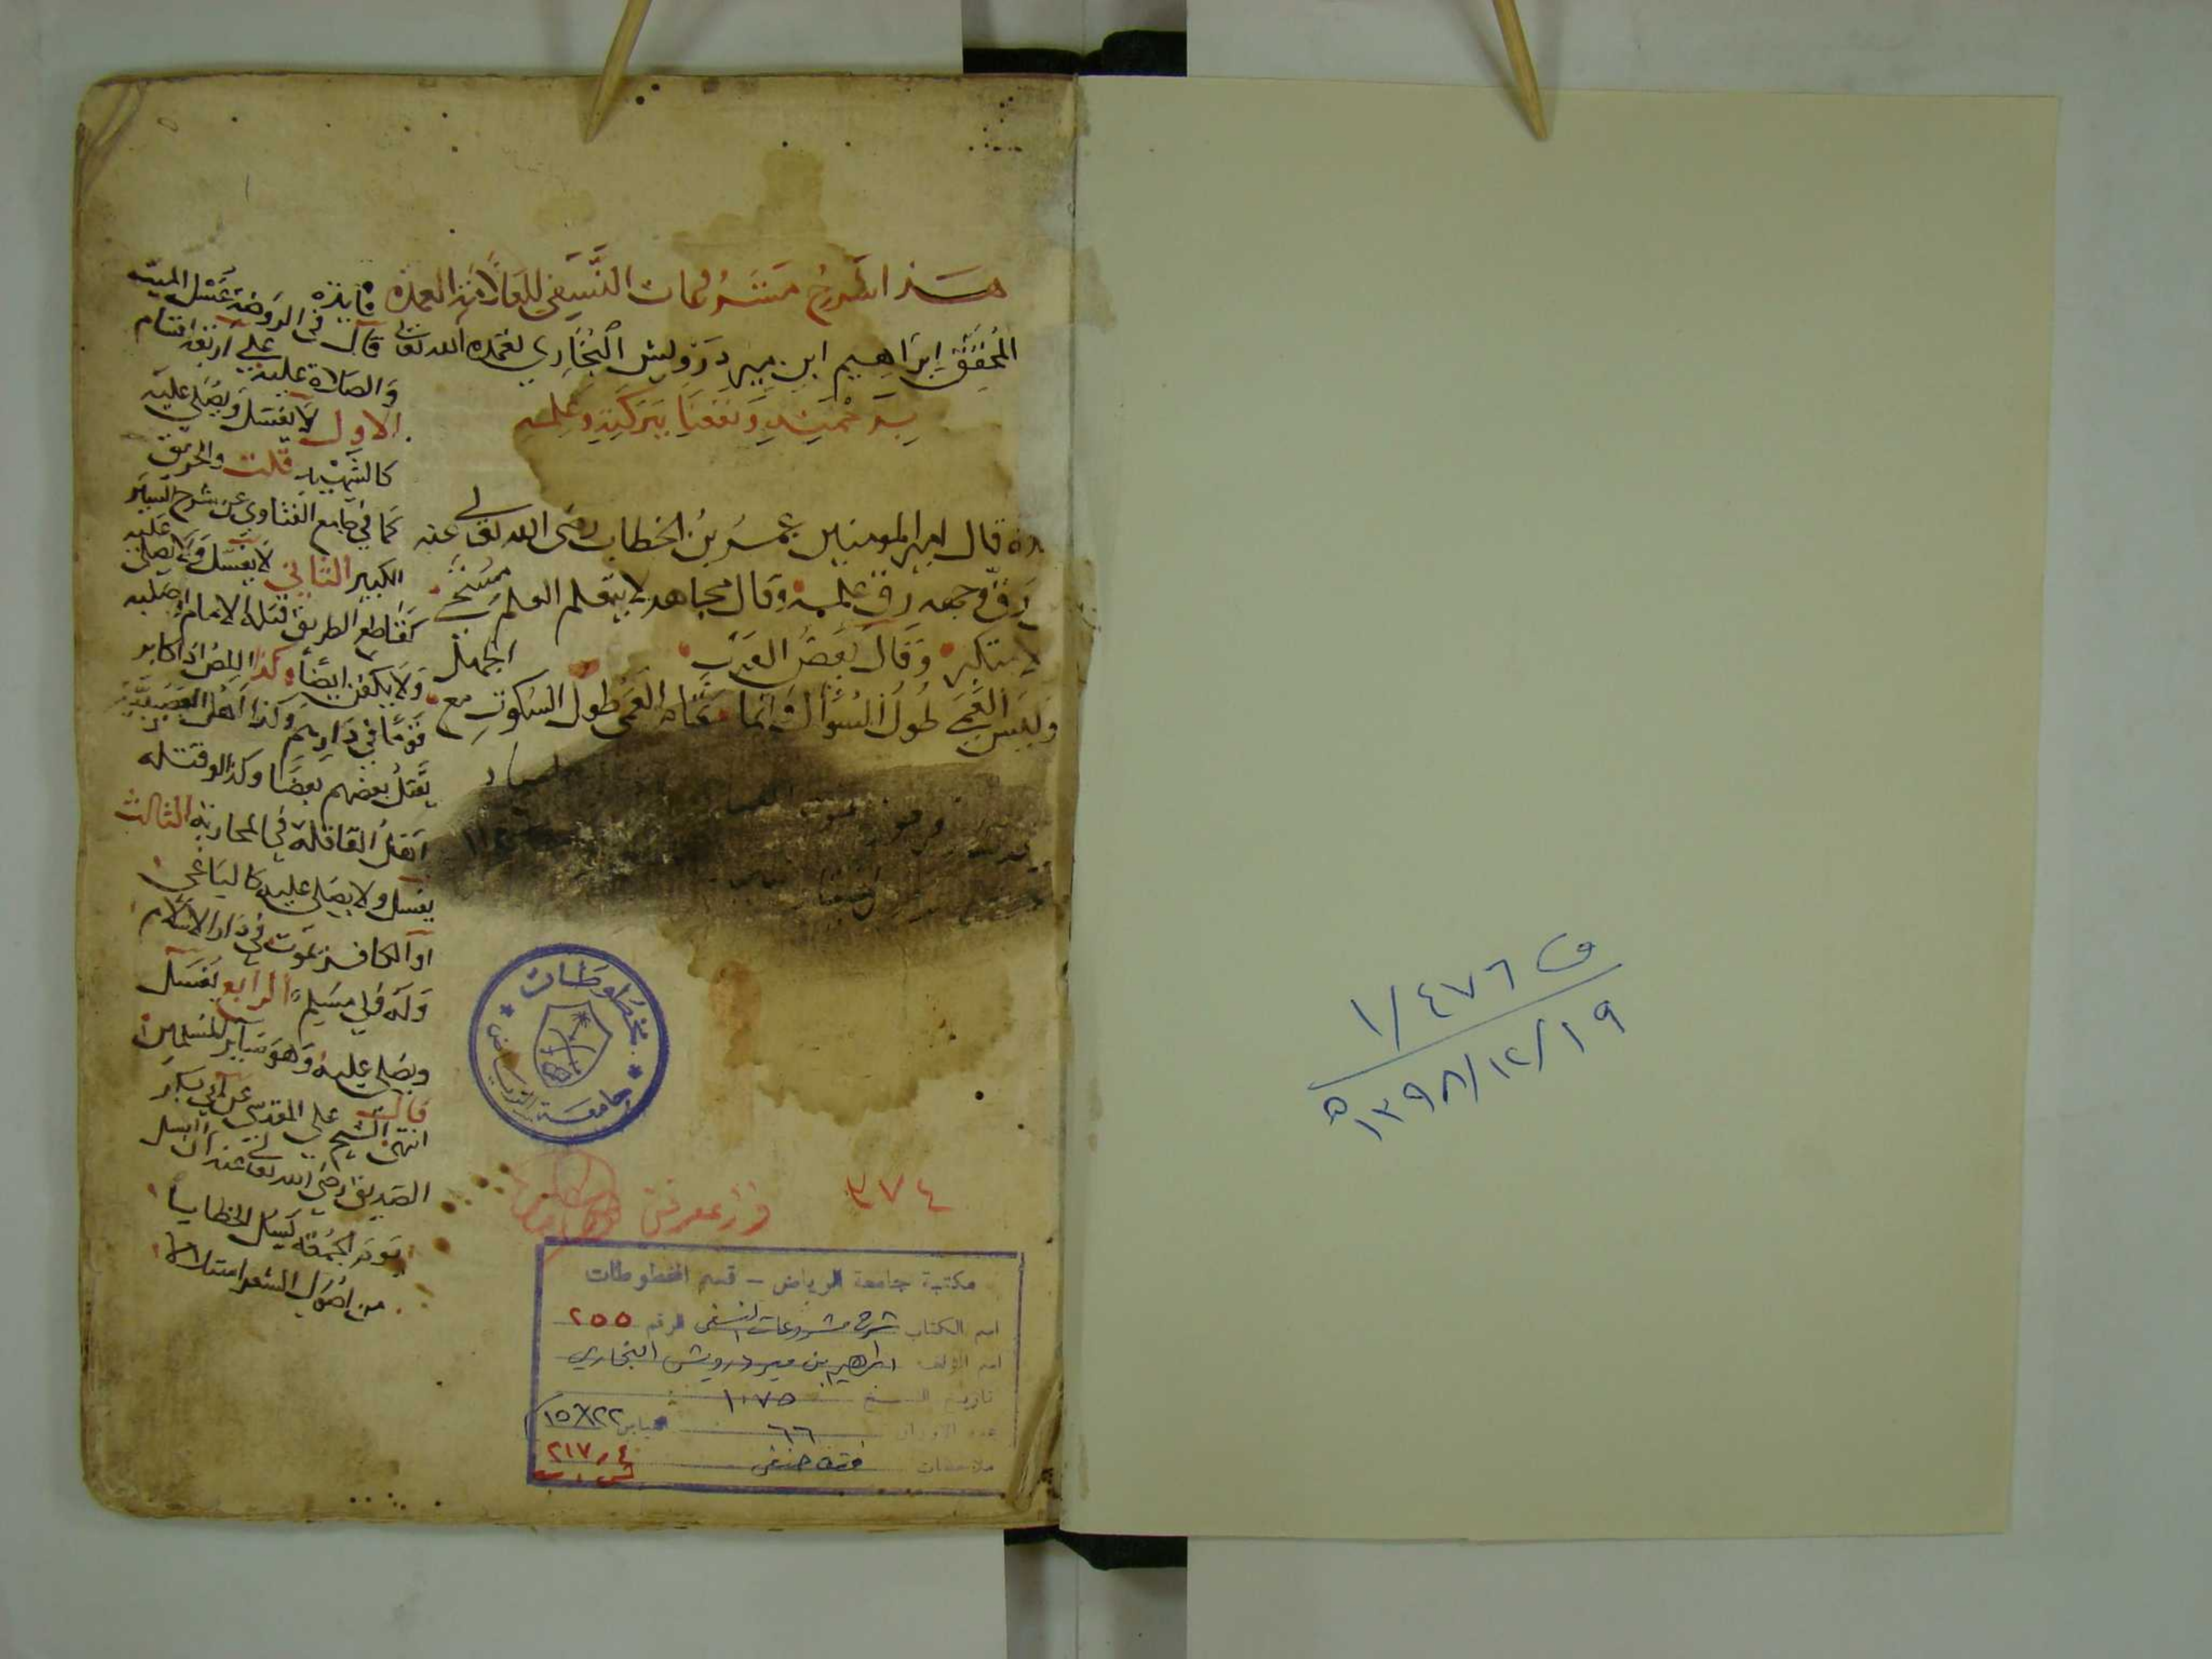 هذا شرح مشروعات النسفي للعلامة العمدة
المحقق ابراهيم ابن مير درويش البخاري تغمده الله تعالى
برحمته ونفعنا ببركته وعلمه
قال امير المومنين عمر بن الخطاب رضى الله تعالى عنه
رق وجهه رق علمه وقال مجاهد لا يتعلم العلم مستحى
لا متكبر وقال بعض العرب
وليس العمى طول السؤال وانما تمام العمى طول السكوت مع الجهل
فايدة
قال فى الروضة غسل الميت
والصلاة عليه على اربعة اقسام
الاول لا يغسل ويصلى عليه
كالشهيد قلت والحريق
كما في جامع الفتاوي عن شرح السير
الكبير الثاني لا يغسل ولا يصلى عليه
كقاطع الطريق قتله الامام او صلبه
ولا يكفن ايضا وكذا اللص اذا كابر
قوما في دارهم وكذا اهل العصبية
يقتل بعضهم بعضا وكذا لو قتله
اهل القافلة في المحاربة الثالث
يغسل ولا يصلى عليه كالباغي
او الكافر يموت في دار الاسلام
وله ولي مسلم الرابع يغسل
ويصلى عليه وهو ساير المسلمين
انتهى قالت الشيخ علي المقدسي عن ابي بكر
الصديق رضي الله تعالى عنه ان
يوم الجمعة الخطايا
من اصول الشعر استلالا
مخطوطات
جامعة الرياض
٣٧٤
مكتبة جامعة الرياض - قسم المخطوطات
اسم الكتاب شرح مشروعات النسفى الرقم ٢٥٥
اسم المؤلف ابراهيم بن مير درويش البخاري
تاريخ النسخ ١٠٧٥
عدد الاوراق ٦٦ القياس ٢٢×١٥
ملاحظات فقه حنفى ٢١٧٫٤
ف ١/٤٧٦
١٣٩٨/١٢/١٩ ه